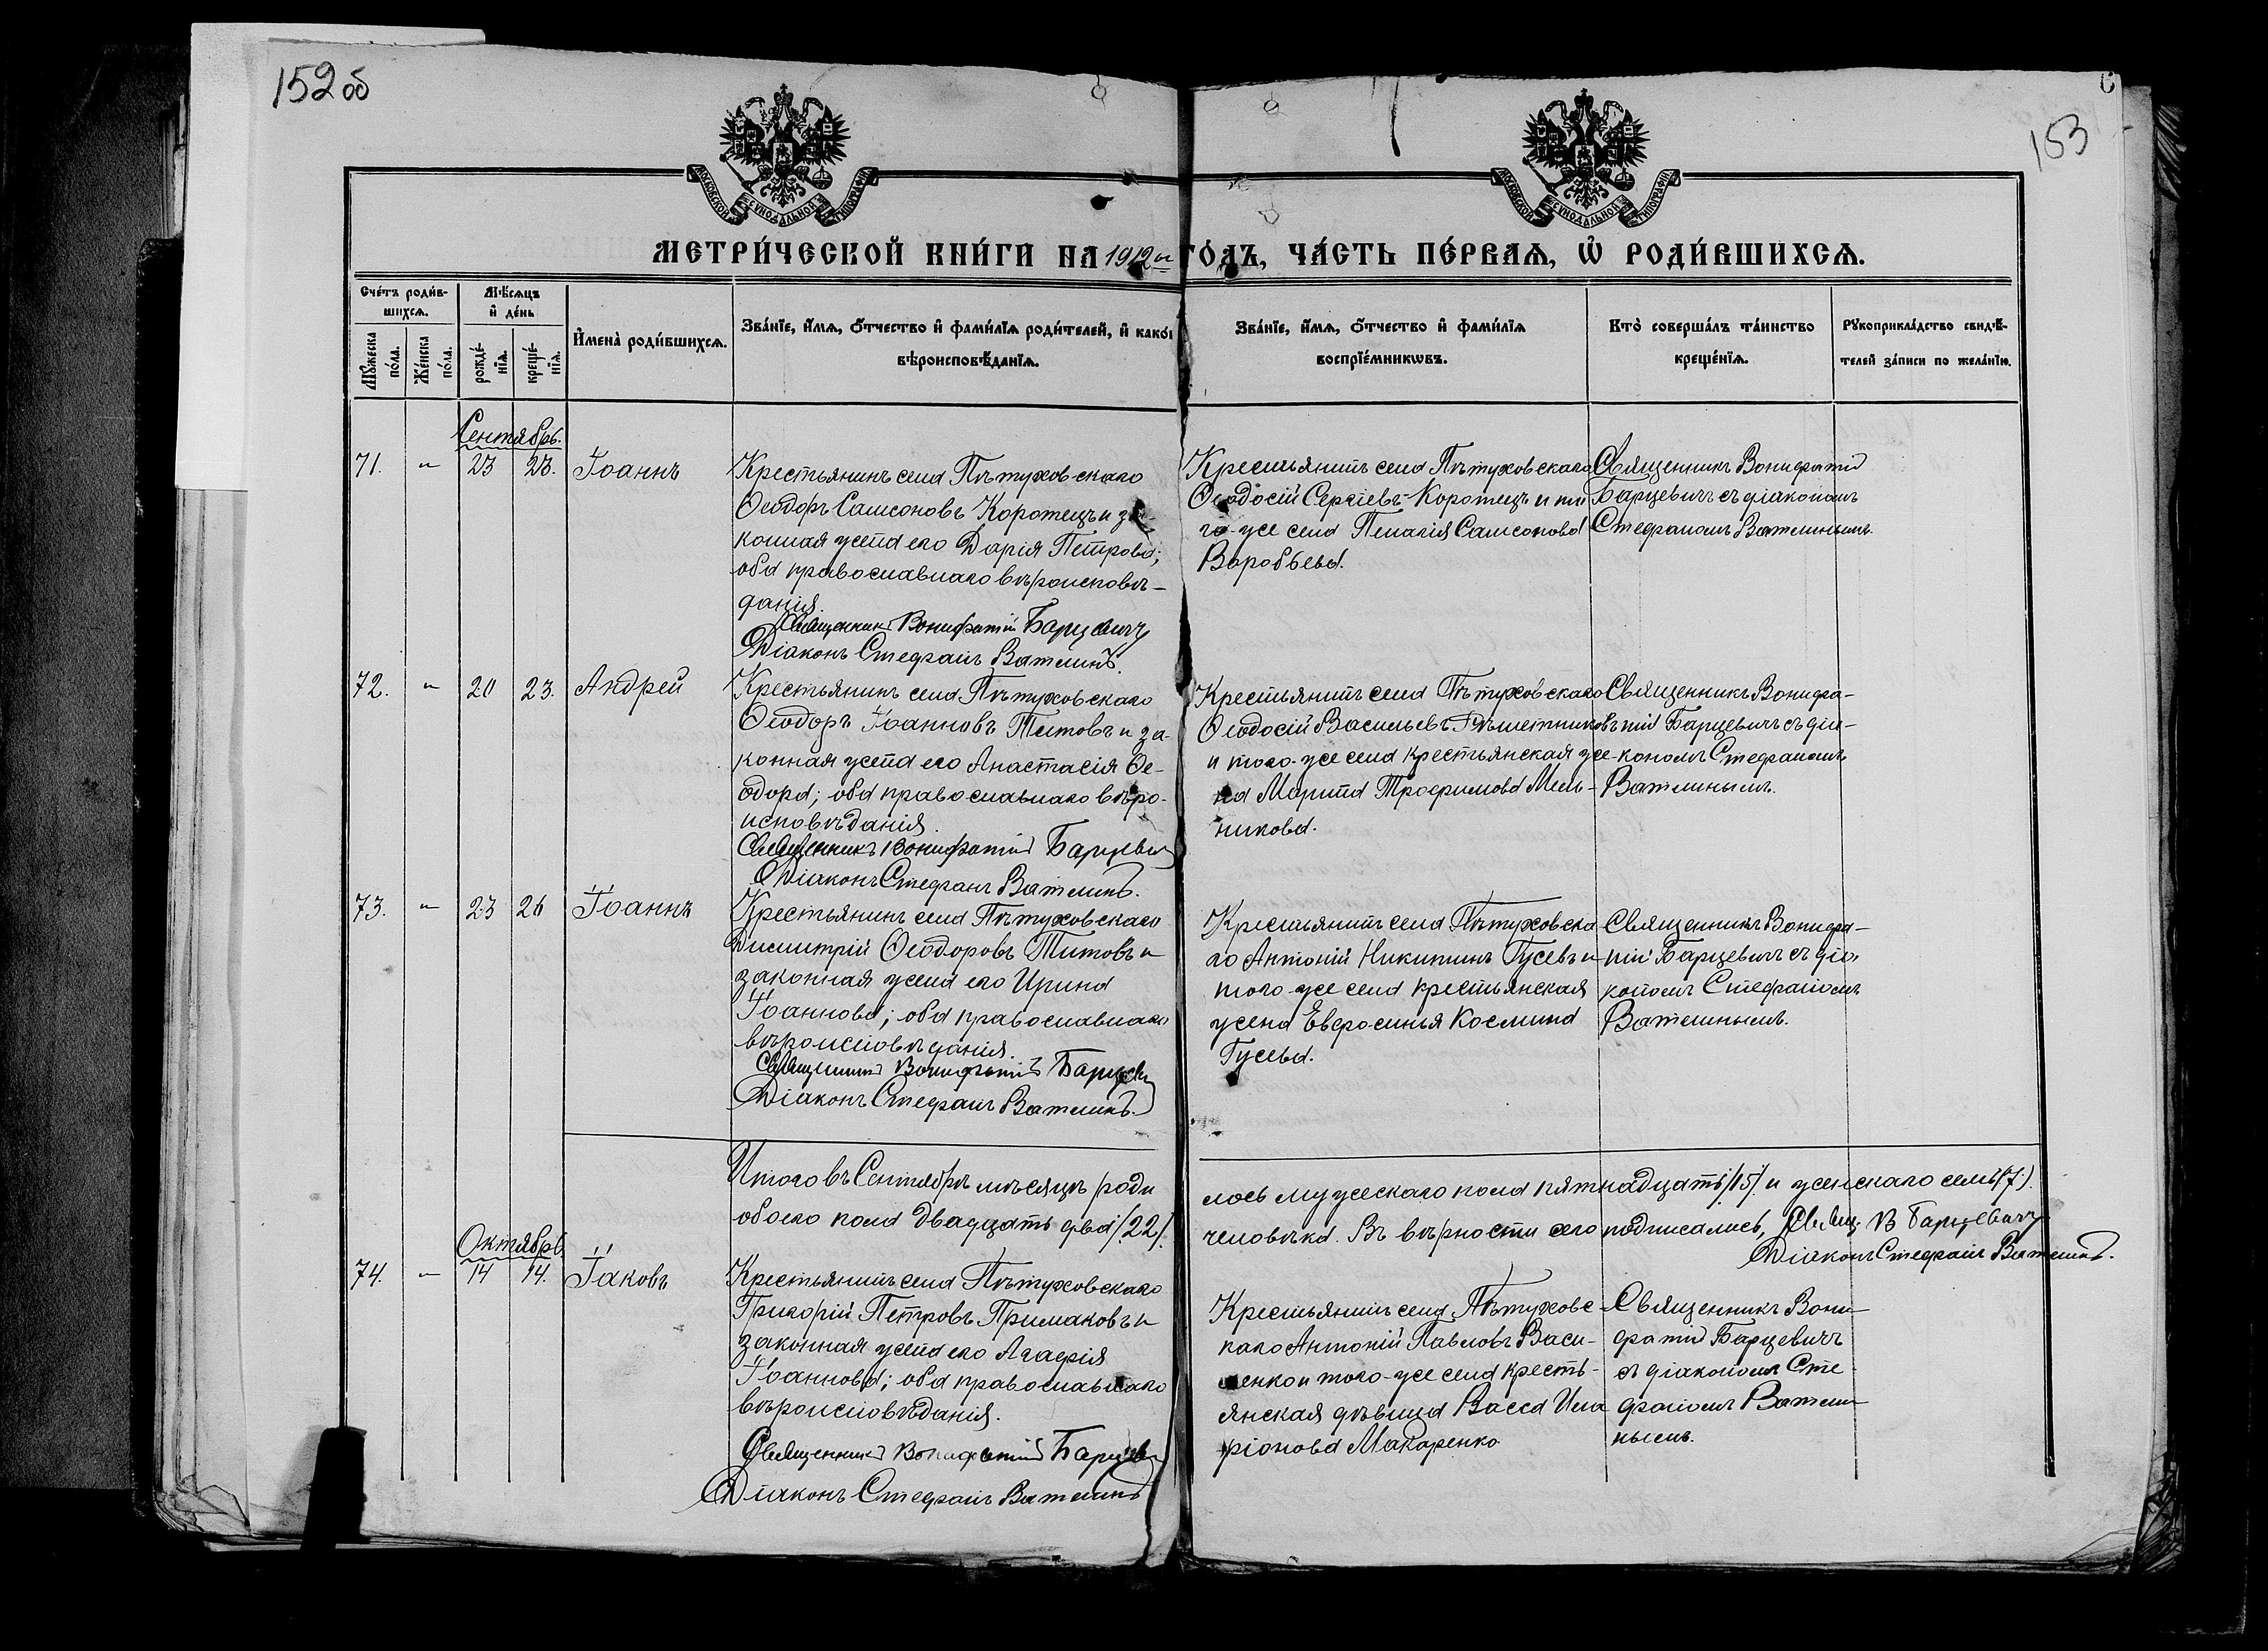 152 об
153
МОСКОВСКОЙ СѴНОДАЛЬНОЙ ТИПОГРАФІИ
МОСКОВСКОЙ СѴНОДАЛЬНОЙ ТИПОГРАФІИ
МЕТРИ́ЧЕСКОЙ КНИ́ГИ НА 1912 ой ГО́ДЪ, ЧА́СТЬ ПЕ́РВАѦ, Ѡ҆ РОДИ́ВШИХСѦ.
Сче́тъ роди́в-
шихсѧ.
Мꙋ́жеска по́ла.
Же́нска по́ла.
Мѣ́сѧцъ
и҆ де́нь
рожде́-
нїѧ.
креще́-
нїѧ.
И҆мена̀ роди́вшихсѧ.
Зва́нїе, и҆́мѧ, ѻ҆́тчество и҆ фами́лїѧ роди́телей, и҆ како́гѡ
вѣроисповѣ́данїѧ.
Зва́нїе, и҆́мѧ, ѻ҆́тчество и҆ фами́лїѧ
воспрїе́мникѡвъ.
Кто̀ соверша́лъ та́инство
креще́нїѧ.
Рꙋкоприкла́дство свидѣ́-
телей за́писи по жела́нїю.
Сентябрь.
71. " 23 23. Іоаннъ
Крестьянинъ села Пѣтуховскаго
Ѳеодоръ Самсоновъ Коротецъ и за-
конная жена его Дарія Петрова;
оба православнаго вѣроисповѣ-
данія.
Священникъ Вонифатій Барцевичъ
Діаконъ Стефанъ Ватлинъ.
Крестьянинъ села Пѣтуховскаго
Ѳеодосій Сергіевъ Коротецъ и то-
го-же села Пелагія Самсонова
Воробьева.
Священникъ Вонифатій
Барцевичъ съ діакономъ
Стефаномъ Ватлинымъ.
72. " 20 23. Андрей
Крестьянинъ села Пѣтуховскаго
Ѳеодоръ Іоанновъ Титовъ и за-
конная жена его Анастасія Ѳе-
одора; оба православнаго вѣро-
исповѣданія.
Священникъ Вонифатій Барцевичъ
Діаконъ Стефанъ Ватлинъ.
Крестьянинъ села Пѣтуховскаго
Ѳеодосій Васильевъ Рѣшетниковъ
и того-же села крестьянская же-
на Марина Трофимова Мель-
никова.
Священникъ Вонифа-
тій Барцевичъ съ діа-
кономъ Стефаномъ
Ватлинымъ.
73. " 23 26 Іоаннъ
Крестьянинъ села Пѣтуховскаго
Димитрій Ѳеодоровъ Титовъ и
законная жена его Ирина
Іоаннова; оба православнаго
вѣроисповѣданія.
Священникъ Вонифатій Барцевичъ
Діаконъ Стефанъ Ватлинъ.
Крестьянинъ села Пѣтуховска-
го Антоній Никитинъ Гусевъ и
того-же села крестьянская
жена Евфросинья Косьмина
Гусева.
Священникъ Вонифа-
тій Барцевичъ съ діа-
кономъ Стефаномъ
Ватлинымъ.
Итого въ Сентябрѣ мѣсяцѣ роди
лось мужескаго пола пятнадцать /15/ и женскаго семь (7).
обоего пола двадцать два /22/
человѣка. Въ вѣрности сего подписались, Свящ. В Барцевичъ
Діаконъ Стефанъ Ватлинъ.
Октябрь
74. " 14 14. Іаковъ
Крестьянинъ села Пѣтуховскаго
Григорій Петровъ Примаковъ и
законная жена его Агафія
Іоаннова; оба православнаго
вѣроисповѣданія.
Священникъ Вонифатій Барцевичъ
Діаконъ Стефанъ Ватлинъ
Крестьянинъ села Пѣтуховс-
каго Антоній Павловъ Васи-
ленко и того-же села кресть-
янская дѣвица Васса Ила
ріонова Макаренко
Священникъ Вони-
фатій Барцевичъ
съ діакономъ Сте-
фаномъ Ватли-
нымъ.